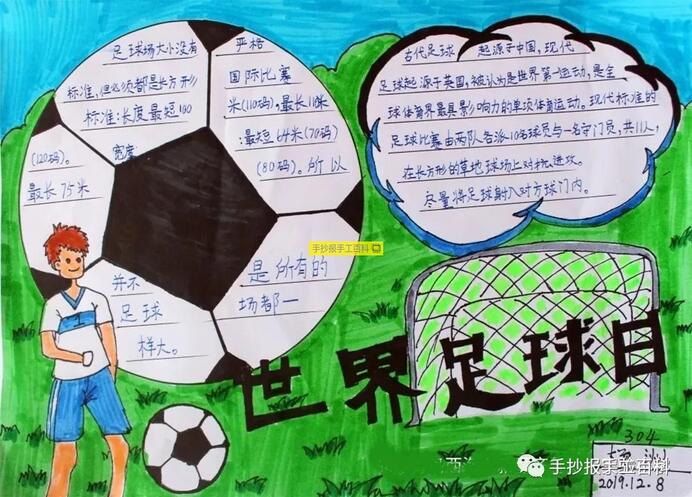 足球场大小没有
严格
标准，但必须都是长方形
国际比赛
标准：长度最短100
米(110码)，最长110米
(120码)。
宽度
：最短64米(70码)
最长75米
(80码)。所以
并不
是所有的
足球
场都一
样大。
古代足球 起源于中国，现代
足球起源于英国，被认为是世界第一运动，是全
球体育界最具影响力的单项体育运动。现代标准的
足球比赛由两队各派10名球员与一名守门员，共11人，
在长方形的草地球场上对抗、进攻。
尽量将足球射入对方球门内。
手抄报手工百科
世界足球日
304
2019.12.8
手抄报手工百科